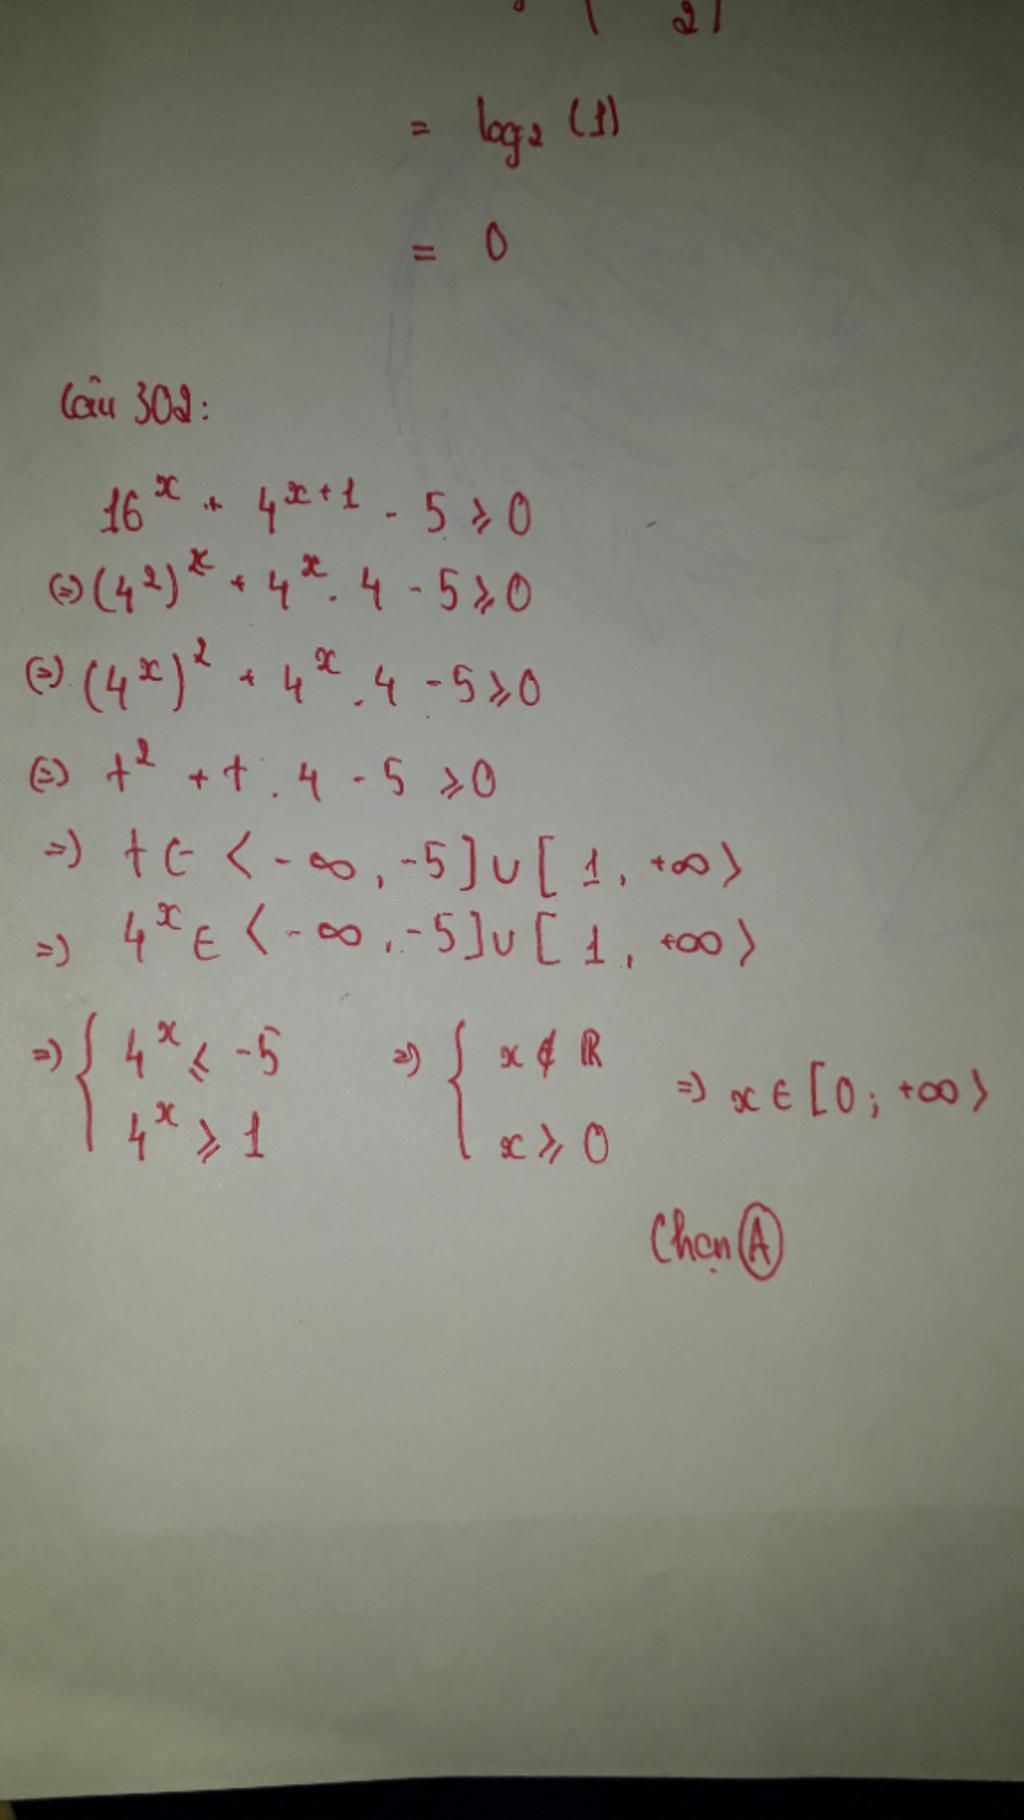 2)
= log₂ (1)
= 0
Câu 302:
16^x + 4^{x+1} - 5 ⩾ 0
(=) (4²)^x + 4^x . 4 - 5 ⩾ 0
(=) (4^x)² + 4^x . 4 - 5 ⩾ 0
(=) t² + t . 4 - 5 ⩾ 0
=) t ∈ < -∞, -5] ∪ [ 1, +∞ >
=) 4^x ∈ < -∞, -5] ∪ [ 1, +∞ >
=) { 4^x ⩽ -5 =) { x ∉ ℝ
4^x ⩾ 1 x ⩾ 0 =) x ∈ [0; +∞ >
Chọn A